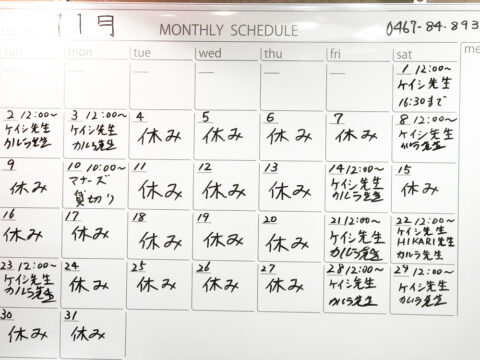 11月
MONTHLY SCHEDULE
0467-84-893
sun mon tue wed thu fri sat
me
1 12:00~
ケイシ先生
16:30まで
2 12:00~
ケイシ先生
カルラ先生
3 12:00~
ケイシ先生
カルラ先生
4
休み
5
休み
6
休み
7
休み
8 12:00~
ケイシ先生
カルラ先生
9
休み
10 10:00~
マナーズ
貸切り
11
休み
12
休み
13
休み
14 12:00~
ケイシ先生
カルラ先生
15
休み
16
休み
17
休み
18
休み
19
休み
20
休み
21 12:00~
ケイシ先生
カルラ先生
22 12:00~
ケイシ先生
HIKARI先生
カルラ先生
23 12:00~
ケイシ先生
カルラ先生
24
休み
25
休み
26
休み
27
休み
28 12:00~
ケイシ先生
カルラ先生
29 12:00~
ケイシ先生
カルラ先生
30
休み
31
休み